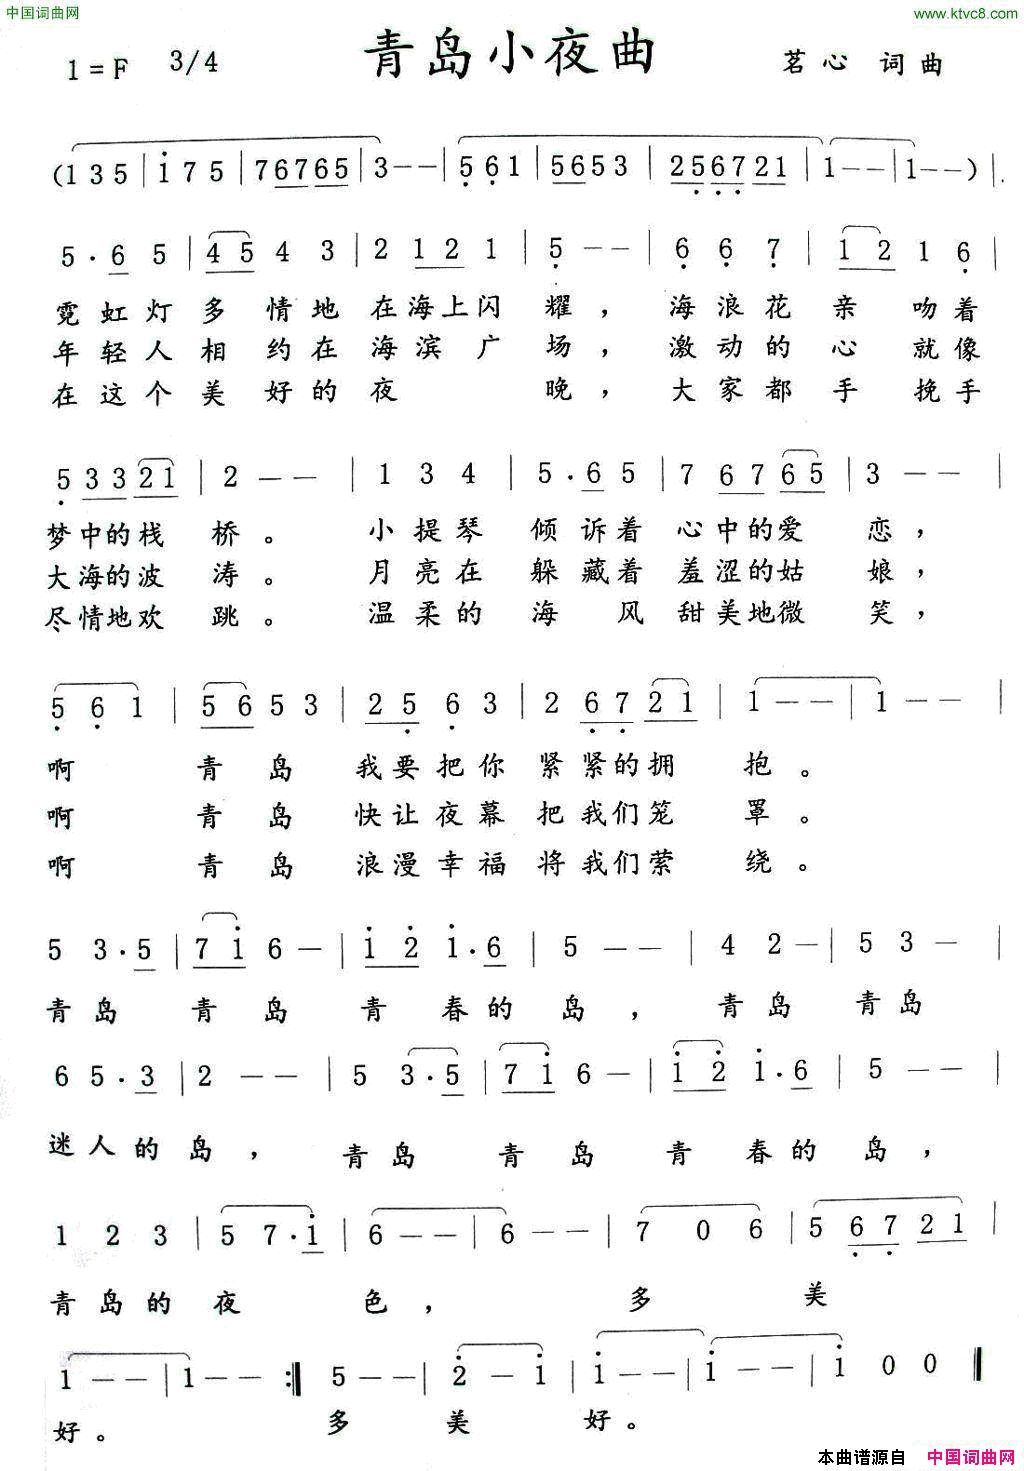 中国词曲网 www.ktvc8.com
1=F 3/4 青岛小夜曲 茗心 词曲
(1 3 5 | i 7 5 | 7 6 7 6 5 | 3 - - | 5 6 1 | 5 6 5 3 | 2 5 6 7 2 1 | 1 - - | 1 - - ) |
5 . 6 5 | 4 5 4 3 | 2 1 2 1 | 5 - - | 6 6 7 | 1 2 1 6 |
霓虹灯多情地在海上闪耀，海浪花亲吻着
年轻人相约在海滨广场，激动的心就像
在这个美好的夜晚，大家都手挽手
5 3 3 2 1 | 2 - - | 1 3 4 | 5 . 6 5 | 7 6 7 6 5 | 3 - - |
梦中的栈桥。小提琴倾诉着心中的爱恋，
大海的波涛。月亮在躲藏着羞涩的姑娘，
尽情地欢跳。温柔的海风甜美地微笑，
5 6 1 | 5 6 5 3 | 2 5 6 3 | 2 6 7 2 1 | 1 - - | 1 - - |
啊青岛我要把你紧紧的拥抱。
啊青岛快让夜幕把我们笼罩。
啊青岛浪漫幸福将我们萦绕。
5 3 . 5 | 7 i 6 - | i 2 i . 6 | 5 - - | 4 2 - | 5 3 - |
青岛青岛青春的岛，青岛青岛
6 5 . 3 | 2 - - | 5 3 . 5 | 7 i 6 - | i 2 i . 6 | 5 - - |
迷人的岛，青岛青岛青春的岛，
1 2 3 | 5 7 . i | 6 - - | 6 - - | 7 0 6 | 5 6 7 2 1 |
青岛的夜色，多美
1 - - | 1 - - :‖ 5 - - | 2 - i | i - - | i - - | i 0 0 ‖
好。多美好。
本曲谱源自 中国词曲网